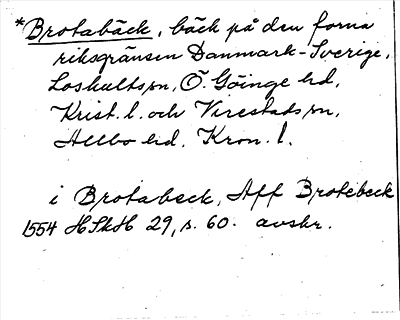 *Brotabäck, bäck på den forna
riksgränsen Danmark-Sverige,
Loshultssn, Ö. Göinge hd,
Krist. l. och Virestadssn,
Allbo hd, Kron. l.
i Brotabeck, Aff Brotebeck
1554 HSkH 29, s. 60. avskr.